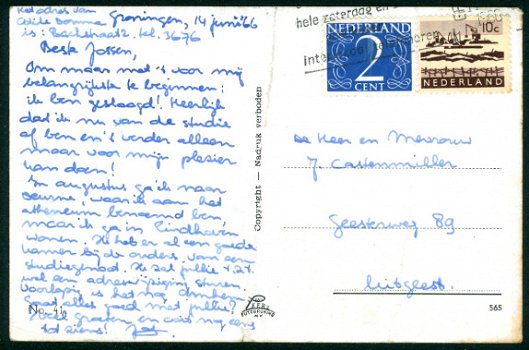 het adres van
Groningen, 14 juni '66
is: Bachstraat 2. tel. 3676
Beste Jossen,
Om maar met 't voor mij
belangrijkste te beginnen:
ik ben geslaagd! Heerlijk
dat ik nu van de studie
af ben en 't verder alleen
maar voor mijn plezier
kan doen!
In augustus ga ik naar
Deurne, waar ik aan het
atheneum benoemd ben
maar ik ga in Eindhoven
wonen. Ik heb er al een goede
kamer bij de ouders van een
studiegenoot. Ik zal jullie t.z.t.
wel een adreswijziging sturen.
Voorlopig is het nog Arnhem.
Gaat alles goed met jullie?
Veel groeten en vast nog eens
tot ziens!
No. 41
Copyright — Nadruk verboden
hele zaterdag en
NEDERLAND
2
CENT
10c
NEDERLAND
De Heer en Mevrouw
J. Castenmiller
Geesterweg 89
Uitgeest.
565